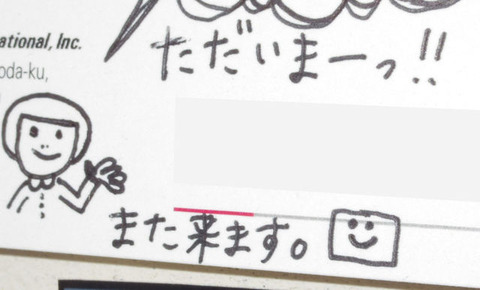 ational, Inc.
ただいまーっ!!
oda-ku,
また来ます。